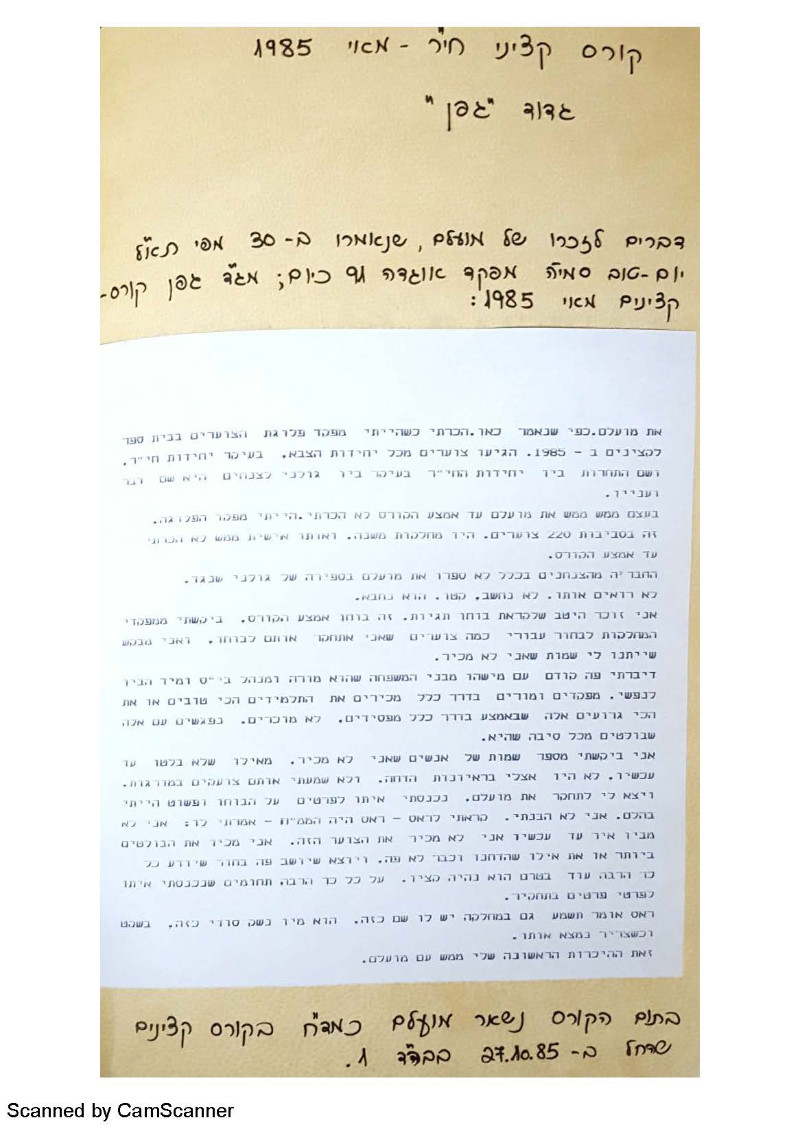 קורס קציני חי"ר - מאי 1985
גדוד "גפן"
דברים לזכרו של מועלם, שנאמרו ב- 30 מפי תא"ל
יום-טוב סמיה מפקד אוגדה 91 כיום; מג"ד גפן קורס-
קצינים מאי 1985:
את מועלם.כפי שנאמר כאן.הכרתי כשהייתי מפקד פלוגת הצוערים בבית ספר
לקצינים ב - 1985. הגיעו צוערים מכל יחידות הצבא. בעיקר יחידות חי"ר.
ושם התחרות בין יחידות החי"ר בעיקר בין גולני לצנחנים היא שם דבר
ועניין.
בעצם ממש ממש את מועלם עד אמצע הקורס לא הכרתי.הייתי מפקד הפלוגה.
זה בסביבות 220 צוערים. היו מחלקות משנה. ואותו אישית ממש לא הכרתי
עד אמצע הקורס.
החבר'ה מהצנחנים בכלל לא ספרו את מועלם בספירה של גולני שנגד.
לא רואים אותו. לא נחשב. קטן. הוא נחבא.
אני זוכר היטב שלקראת בוחן תגיות. זה בוחן אמצע הקורס. ביקשתי ממפקדי
המחלקות לבחור עבורי כמה צוערים שאני אתחקר אותם לבוחן. ואני מבקש
שייתנו לי שמות שאני לא מכיר.
דיברתי פה קודם עם מישהו מבני המשפחה שהוא מורה ומנהל בי"ס ומיד הבין
לנפשי. מפקדים ומורים בדרך כלל מכירים את התלמידים הכי טובים או את
הכי גרועים אלה שבאמצע בדרך כלל מפסידים. לא מוכרים. נפגשים עם אלה
שבולטים מכל סיבה שהיא.
אני ביקשתי מספר שמות של אנשים שאני לא מכיר. מאילו שלא בלטו עד
עכשיו. לא היו אצלי בראיונות הדחה. ולא שמעתי אותם צועקים במדרגות.
ויצא לי לתחקר את מועלם. נכנסתי איתו לפרטים על הבוחן ופשוט הייתי
בהלם. אני לא הבנתי. קראתי לראס - ראס היה הממ"ח - אמרתי לו: אני לא
מבין איך עד עכשיו אני לא מכיר את הצוער הזה. אני מכיר את הבולטים
ביותר או את אילו שהדחנו וכבר לא פה. ויוצא שיושב פה בחור שיודע כל
כך הרבה עוד בטרם הוא נהיה קצין. על כל כך הרבה תחומים שנכנסתי איתו
לפרטי פרטים בתחקיר.
ראס אומר תשמע גם במחלקה יש לו שם כזה. הוא מין נשק סודי כזה. בשקט
וכשצריך נמצא אותו.
זאת ההיכרות הראשונה שלי ממש עם מועלם.
בתום הקורס נשאר מועלם כמד"ח בקורס קצינים
שדחל ב- 27.10.85 בבה"ד 1.
Scanned by CamScanner